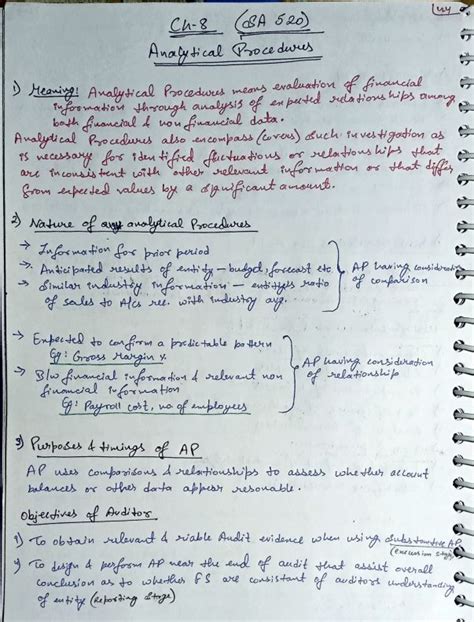 44
Ch-8 (SA 520)
Analytical Procedures
1) Meaning: Analytical Procedures means evaluation of financial
information through analysis of expected relationships among
both financial & non financial data.
Analytical Procedures also encompass (covers) such investigation as
is necessary for identified fluctuations or relationships that
are inconsistent with other relevant information or that differ
from expected values by a significant amount.
2) Nature of analytical Procedures
→ Information for prior period
→ Anticipated results of entity – budget, forecast etc
→ Similar industry information – entity's ratio
of sales to A/cs rec. with industry avg.
AP having consideration
of comparison
→ Expected to confirm a predictable pattern
Eg: Gross Margin %.
→ B/w financial information & relevant non
financial information
Eg: Payroll cost, no of employees
AP having consideration
of relationship
3) Purposes & timings of AP
AP uses comparisons & relationships to assess whether account
balances or other data appear resonable.
Objectives of Auditor
1) To obtain relevant & riable Audit evidence when using substantive AP
(Execusion stage)
2) To design & perform AP near the end of audit that assist overall
conclusion as to whether FS are consistant of auditors understanding
of entity (Reporting Stage)